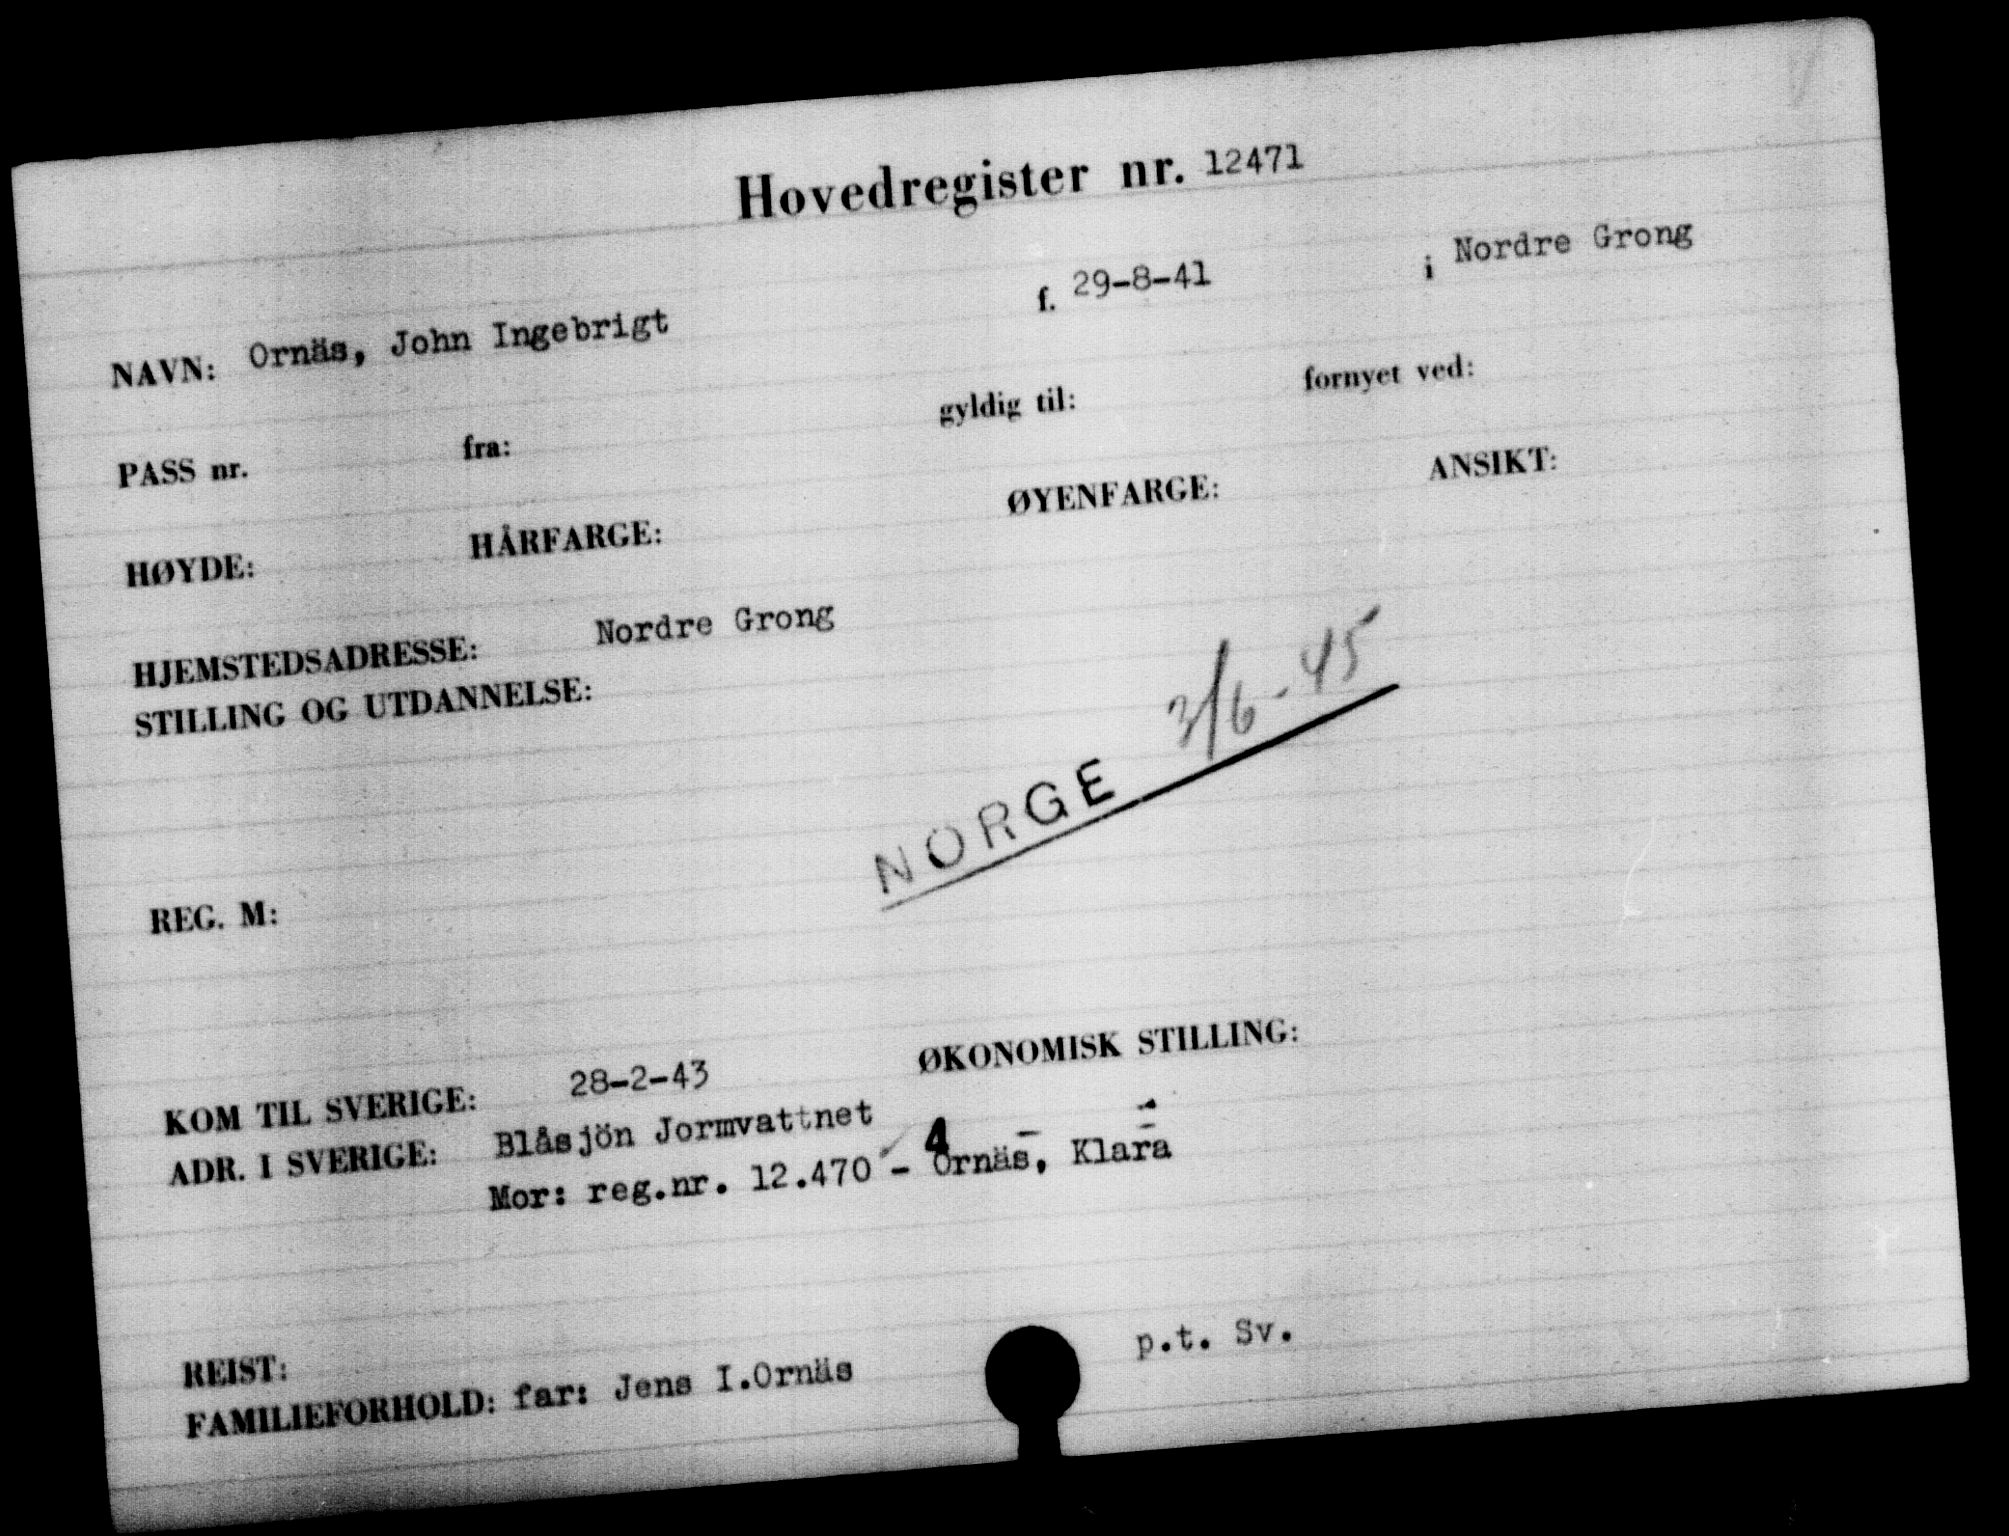 Hovedregister nr. 12471
NAVN: Ornäs, John Ingebrigt f. 29-8-41 i Nordre Grong
PASS nr. fra: gyldig til: fornyet ved:
HØYDE: HÅRFARGE: ØYENFARGE: ANSIKT:
HJEMSTEDSADRESSE: Nordre Grong
STILLING OG UTDANNELSE:
NORGE 3/6-45
REG. M:
KOM TIL SVERIGE: 28-2-43 ØKONOMISK STILLING:
ADR. I SVERIGE: Blåsjön Jormvattnet
Mor: reg.nr. 12.470 - Ornäs, Klara
4
REIST: p.t. Sv.
FAMILIEFORHOLD: far: Jens I.Ornäs